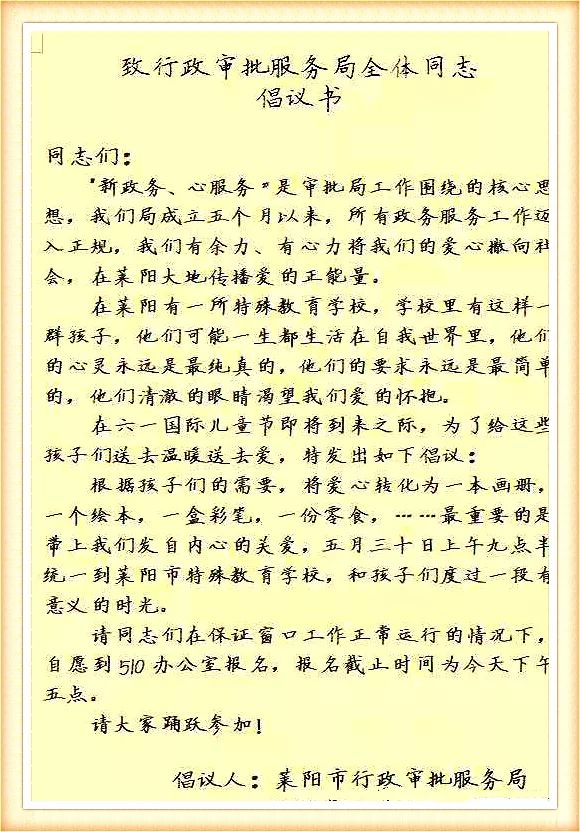 致行政审批服务局全体同志
倡议书
同志们：
“新政务、心服务”是审批局工作围绕的核心思
想，我们局成立五个月以来，所有政务服务工作迈
入正规，我们有余力、有心力将我们的爱心撒向社
会，在莱阳大地传播爱的正能量。
在莱阳有一所特殊教育学校，学校里有这样一
群孩子，他们可能一生都生活在自我世界里，他们
的心灵永远是最纯真的，他们的要求永远是最简单
的，他们清澈的眼睛渴望我们爱的怀抱。
在六一国际儿童节即将到来之际，为了给这些
孩子们送去温暖送去爱，特发出如下倡议：
根据孩子们的需要，将爱心转化为一本画册，
一个绘本，一盒彩笔，一份零食，……最重要的是
带上我们发自内心的关爱，五月三十日上午九点半
统一到莱阳市特殊教育学校，和孩子们度过一段有
意义的时光。
请同志们在保证窗口工作正常运行的情况下，
自愿到510办公室报名，报名截止时间为今天下午
五点。
请大家踊跃参加！
倡议人：莱阳市行政审批服务局